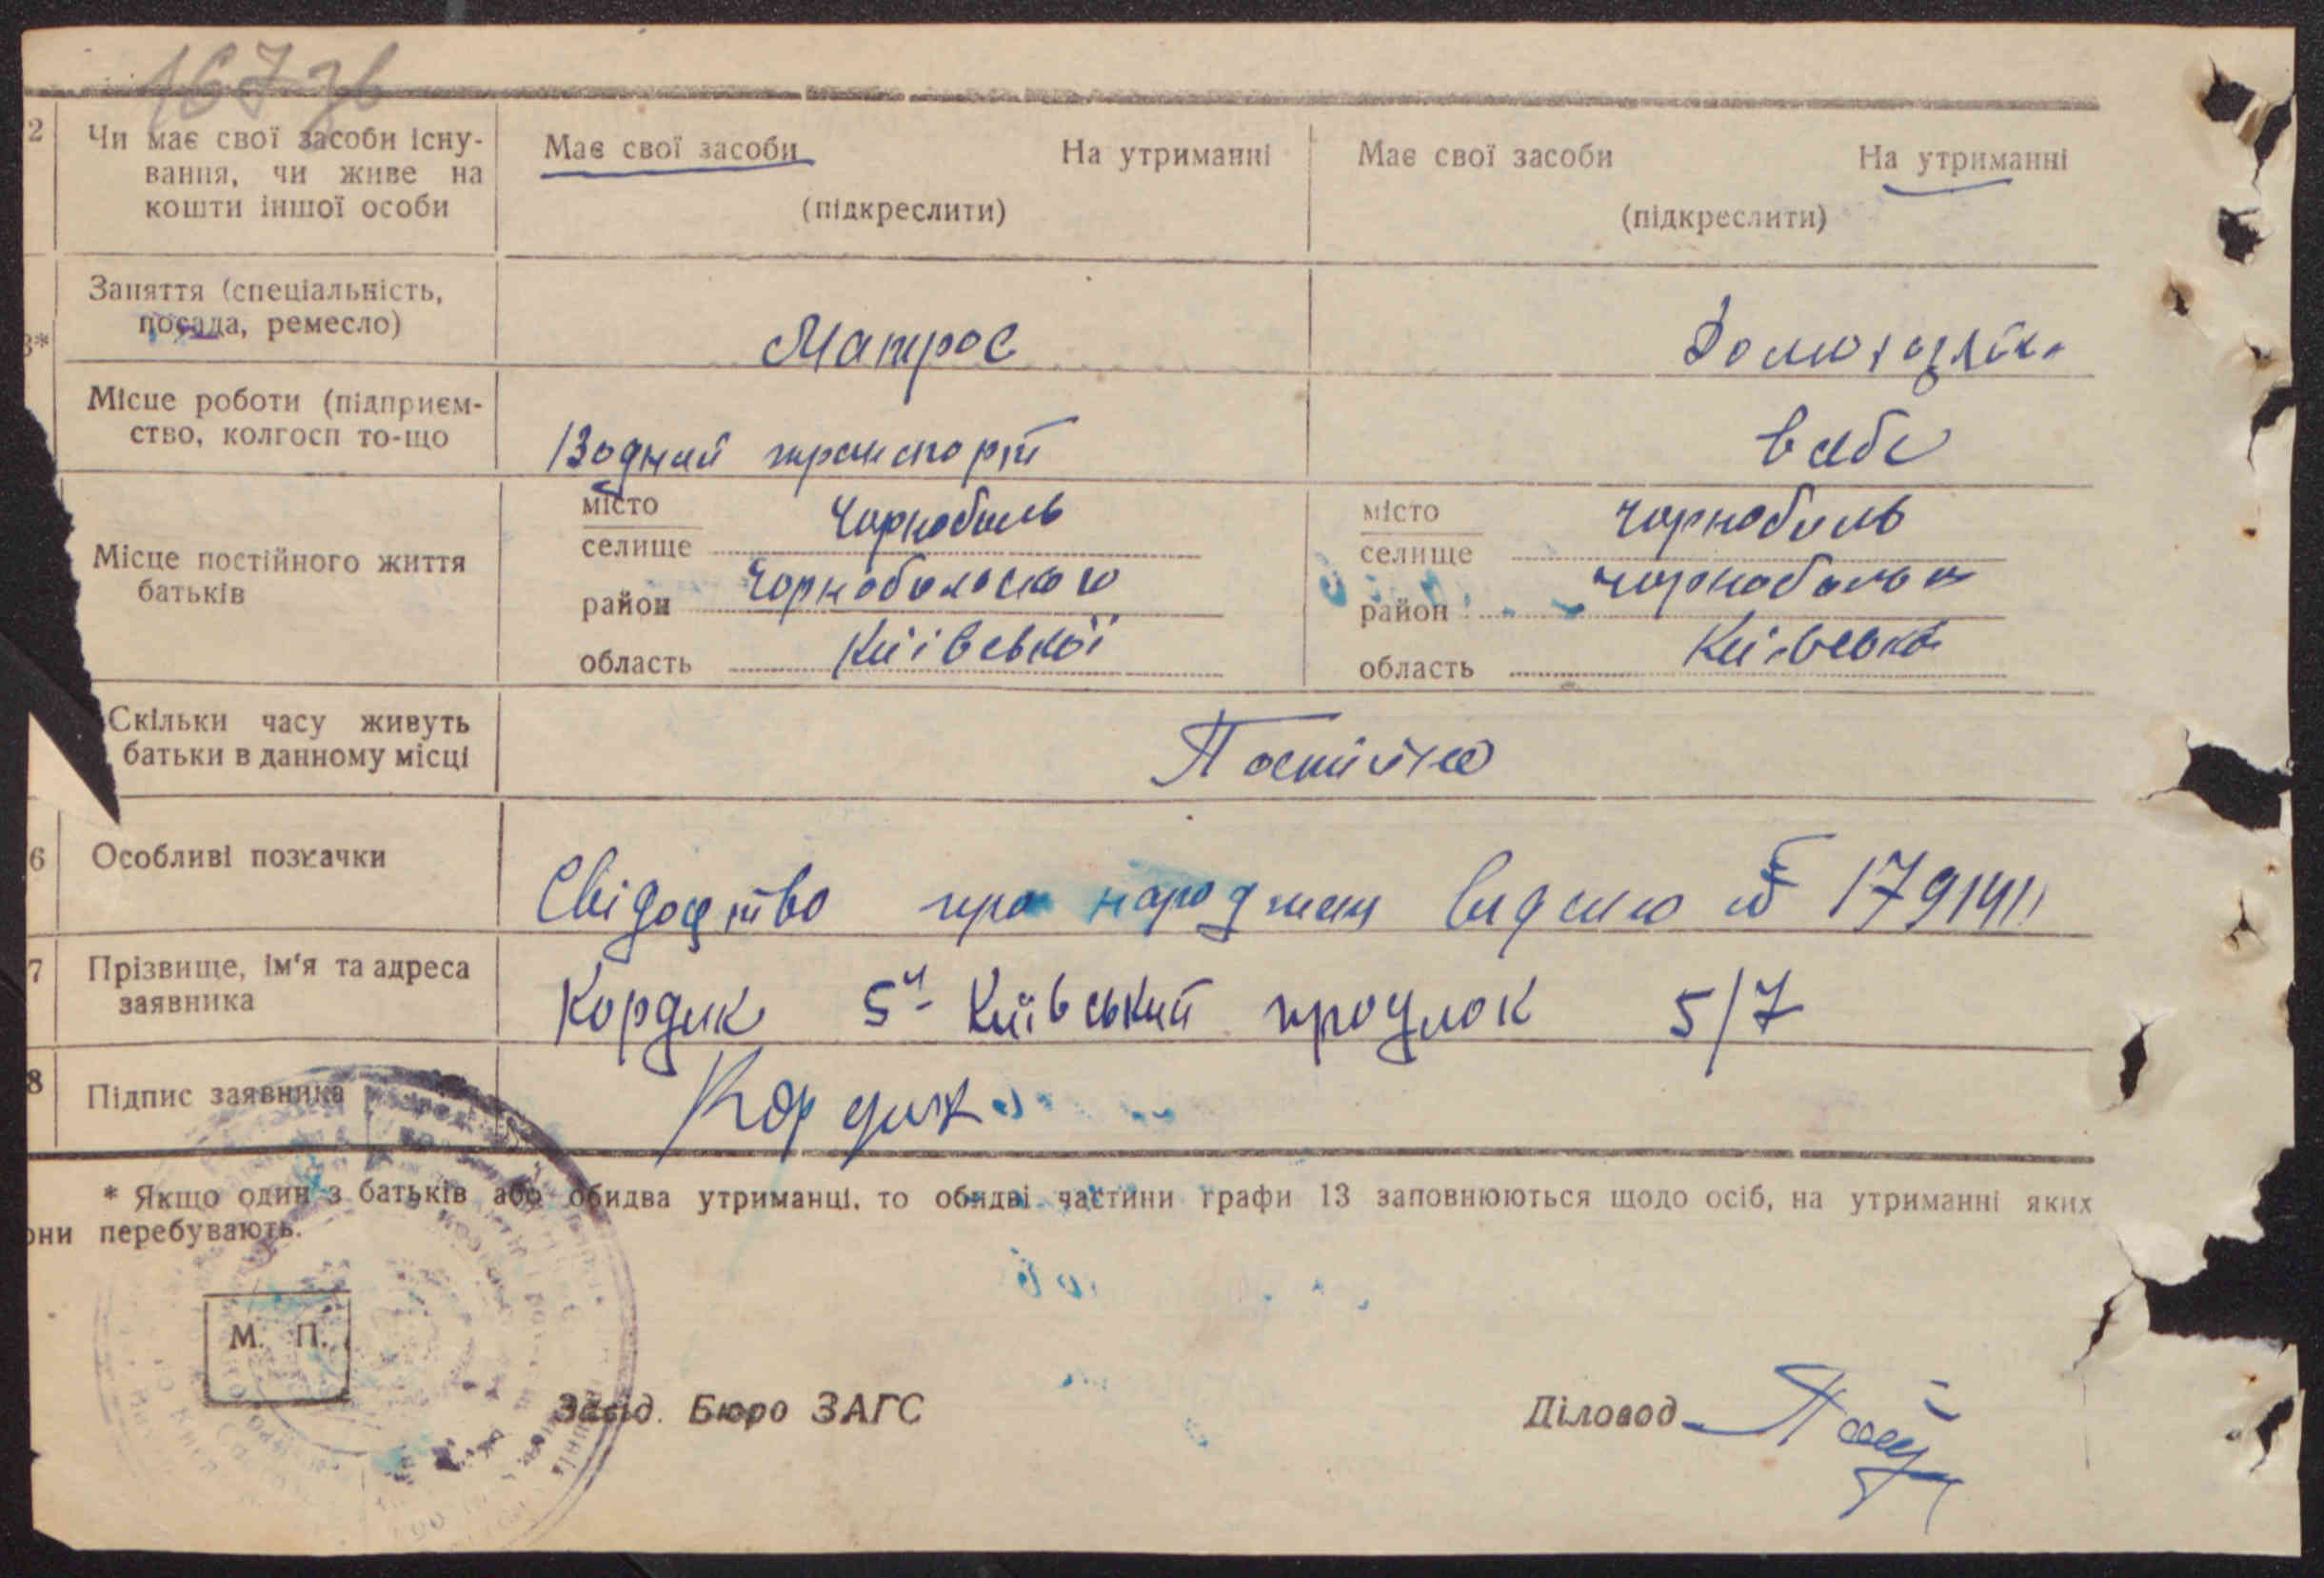 167 зв
2 Чи має свої засоби існу-
вання, чи живе на
кошти іншої особи
Має свої засоби На утриманні
(підкреслити)
Має свої засоби На утриманні
(підкреслити)
3* Заняття (спеціальність,
посада, ремесло)
Матрос
Місце роботи (підприєм-
ство, колгосп то-що
Водний транспорт
в себе
Місце постійного життя
батьків
місто
селище Чорнобиль
район Чорнобильского
область Київської
місто
селище Чорнобиль
район
область
Скільки часу живуть
батьки в данному місці
Постійно
6 Особливі позначки
Свідоцтво про народжен видано
7 Прізвище, ім'я та адреса
заявника
Кордик 5й Київський проулок 5/7
8 Підпис заявника
Кордик
* Якщо один з батьків або обидва утриманці, то обидві частини графи 13 заповнюються щодо осіб, на утриманні яких
они перебувають.
М. П.
Завід. Бюро ЗАГС
Діловод